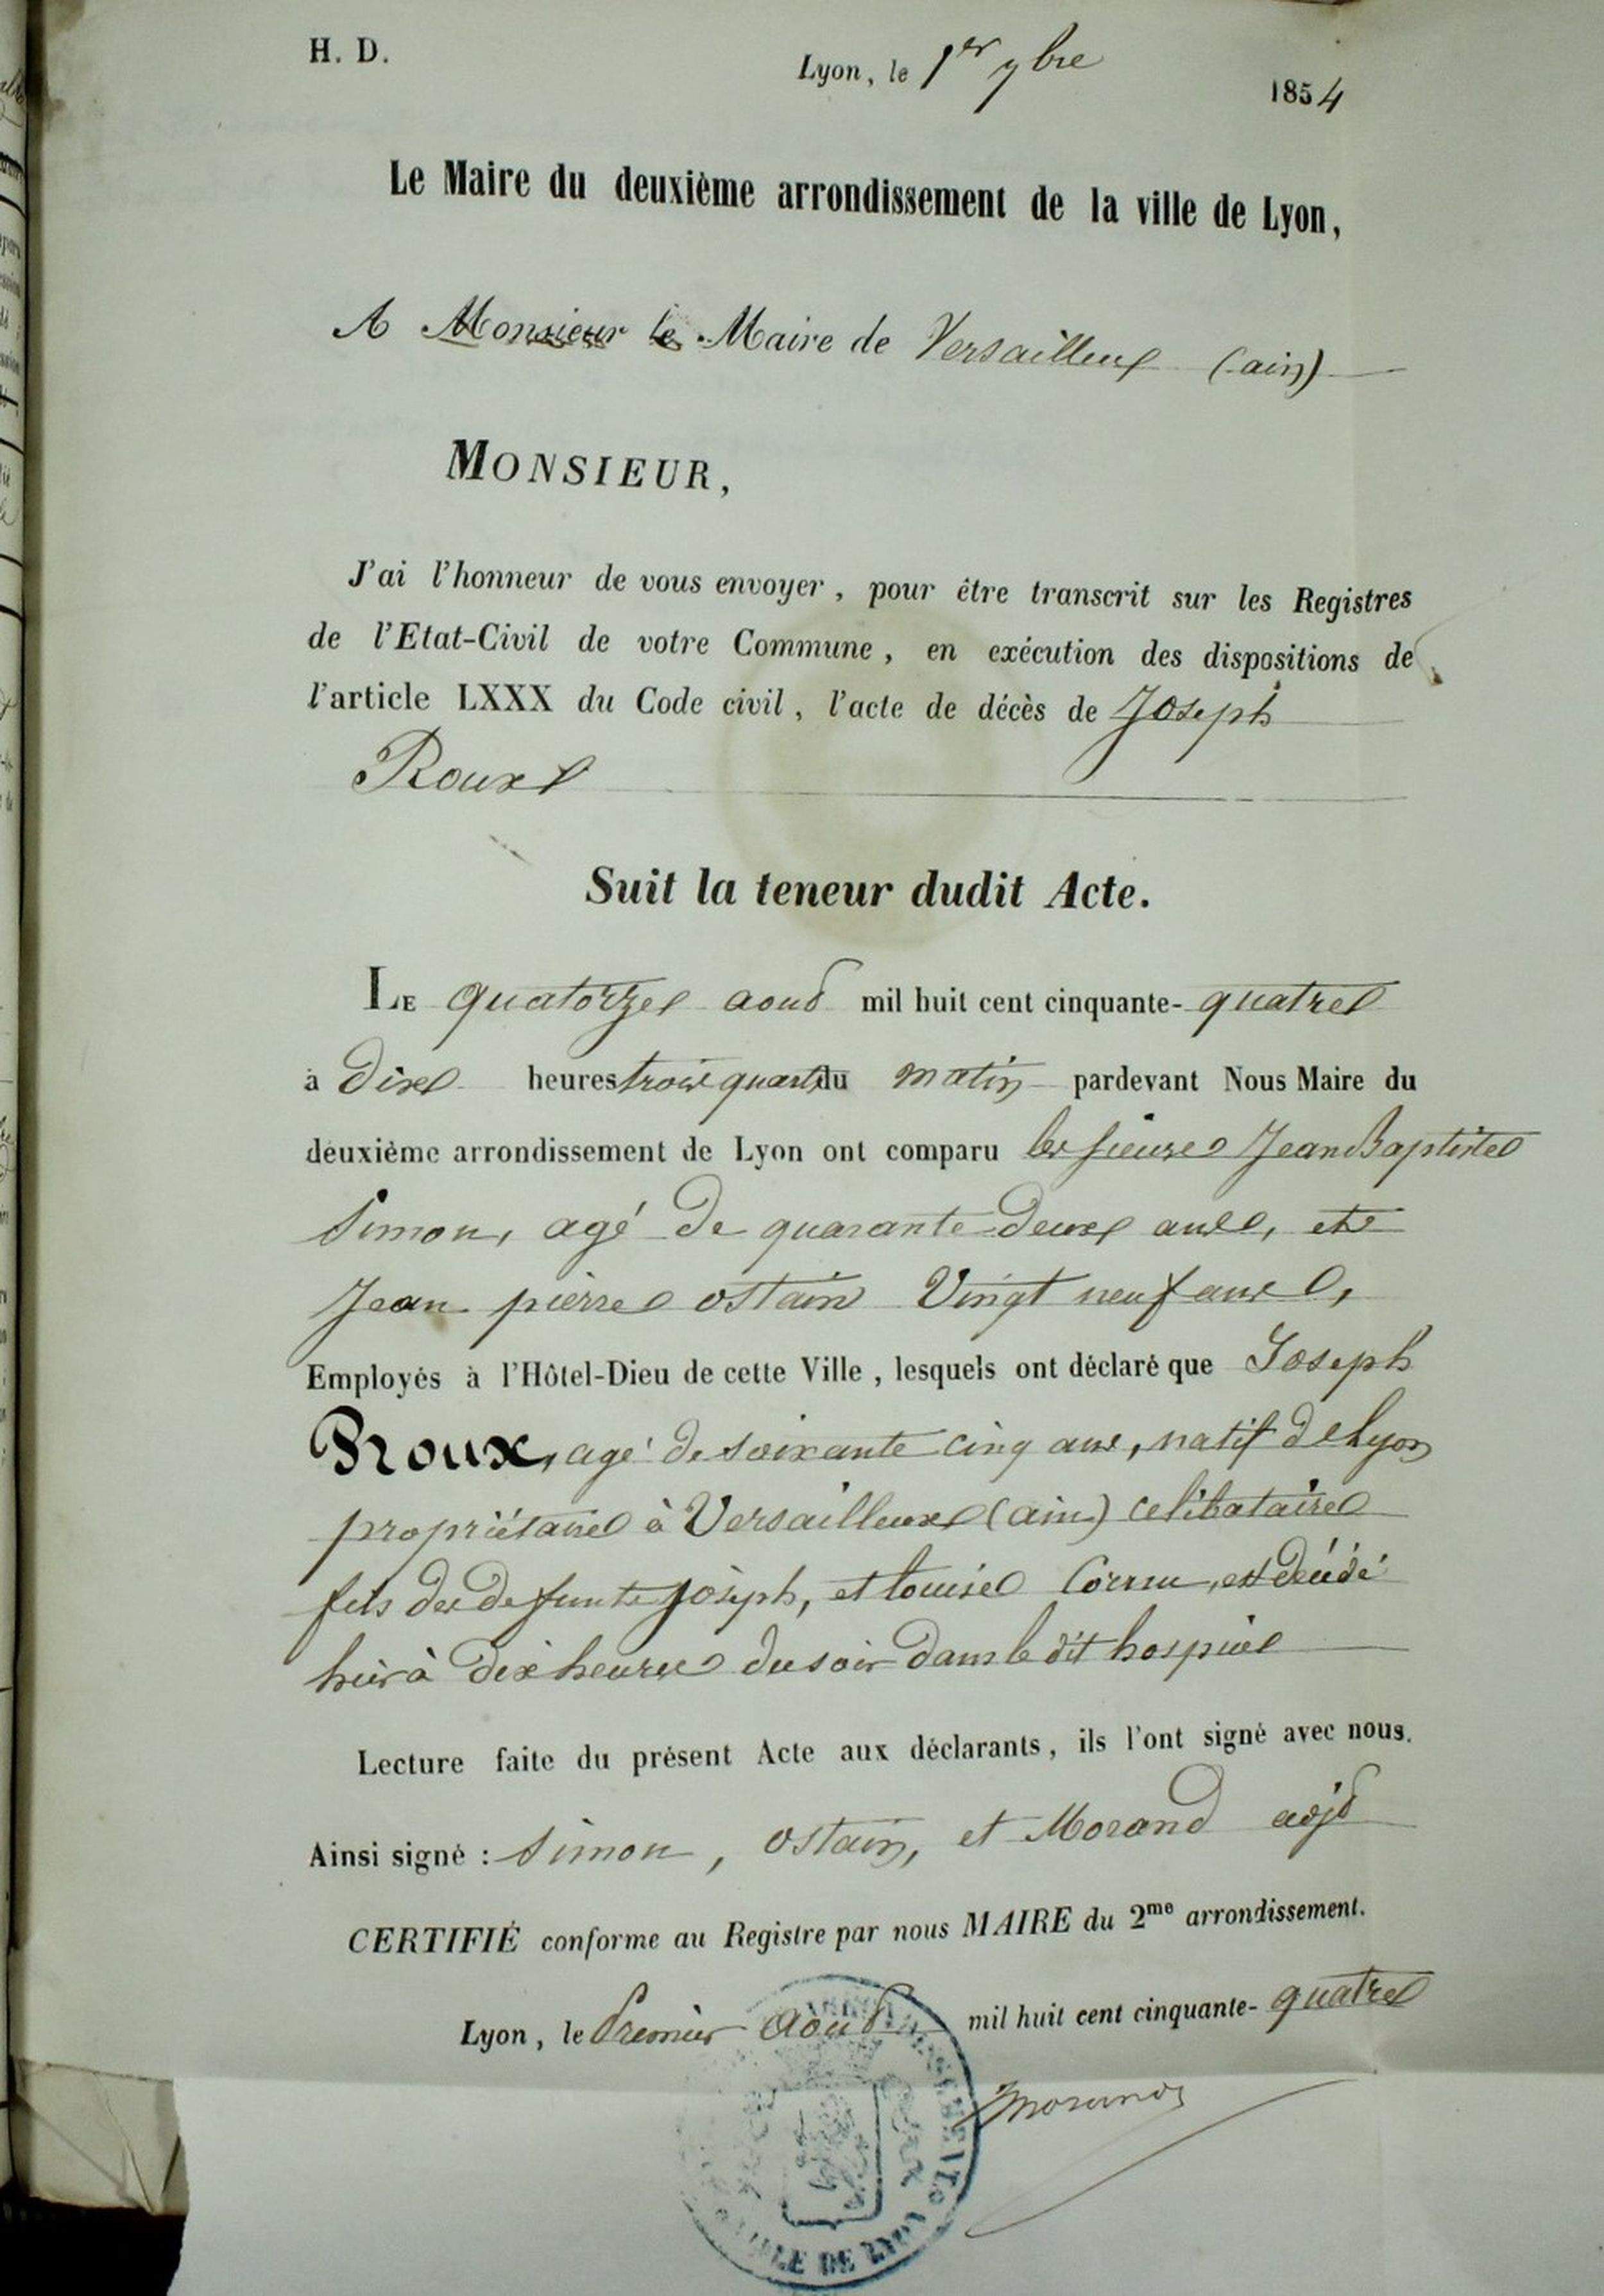 H. D.
Lyon, le 1er 7bre 1854
Le Maire du deuxième arrondissement de la ville de Lyon,
A Monsieur le Maire de Versailleux (ain)
MONSIEUR,
J'ai l'honneur de vous envoyer, pour être transcrit sur les Registres
de l'Etat-Civil de votre Commune, en exécution des dispositions de
l'article LXXX du Code civil, l'acte de décès de Joseph
Roux
Suit la teneur dudit Acte.
LE quatorze aout mil huit cent cinquante-quatre
à dix heures trois quarts du matin pardevant Nous Maire du
deuxième arrondissement de Lyon ont comparu les sieurs Jean Baptiste
Simon, agé de quarante deux ans, et
Jean pierre ostain Vingt neuf ans,
Employés à l'Hôtel-Dieu de cette Ville, lesquels ont déclaré que Joseph
Roux, agé de soixante cinq ans, natif de Lyon
propriétaire à Versailleux (ain) celibataire
fils des defunts Joseph, et Louise Cornu, est décédé
hier à dix heures du soir dans le dit hospice
Lecture faite du présent Acte aux déclarants, ils l'ont signé avec nous.
Ainsi signé : Simon, Ostain, et Morand adjt
CERTIFIÉ conforme au Registre par nous MAIRE du 2me arrondissement.
Lyon, le Premier Aout mil huit cent cinquante-quatre
Morand
VILLE DE LYON